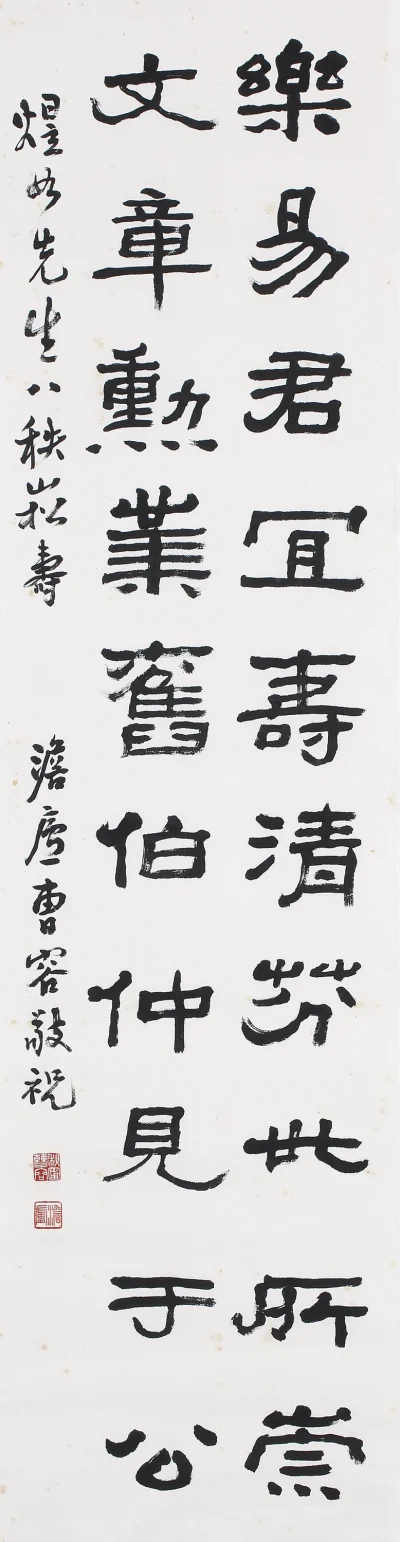 樂易君宜壽清芬世所崇
文章勳業舊伯仲見于公
煜如先生八秩崧壽
澹廬曹容敬祝